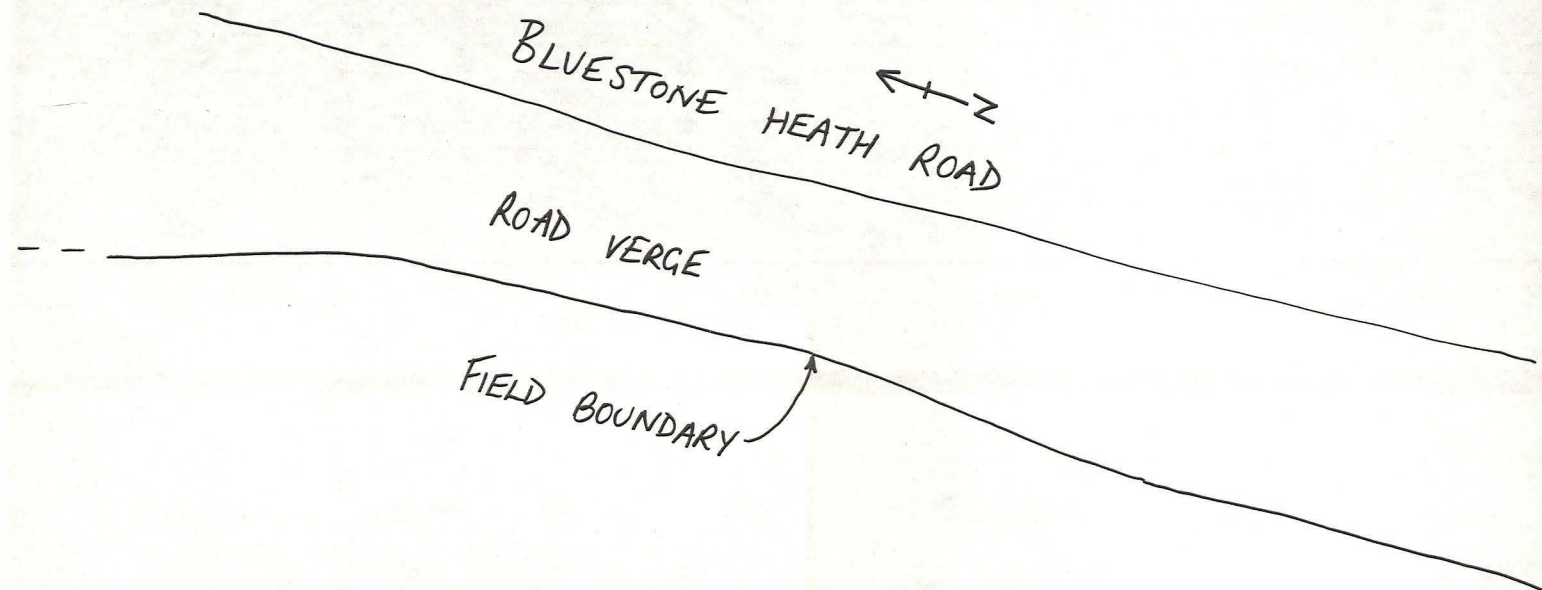 BLUESTONE HEATH ROAD
N
ROAD VERGE
FIELD BOUNDARY